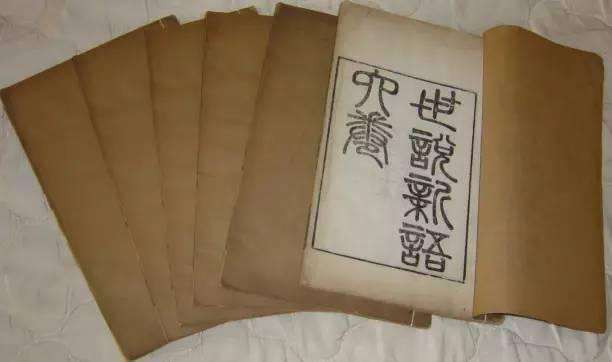 世說新語
六卷